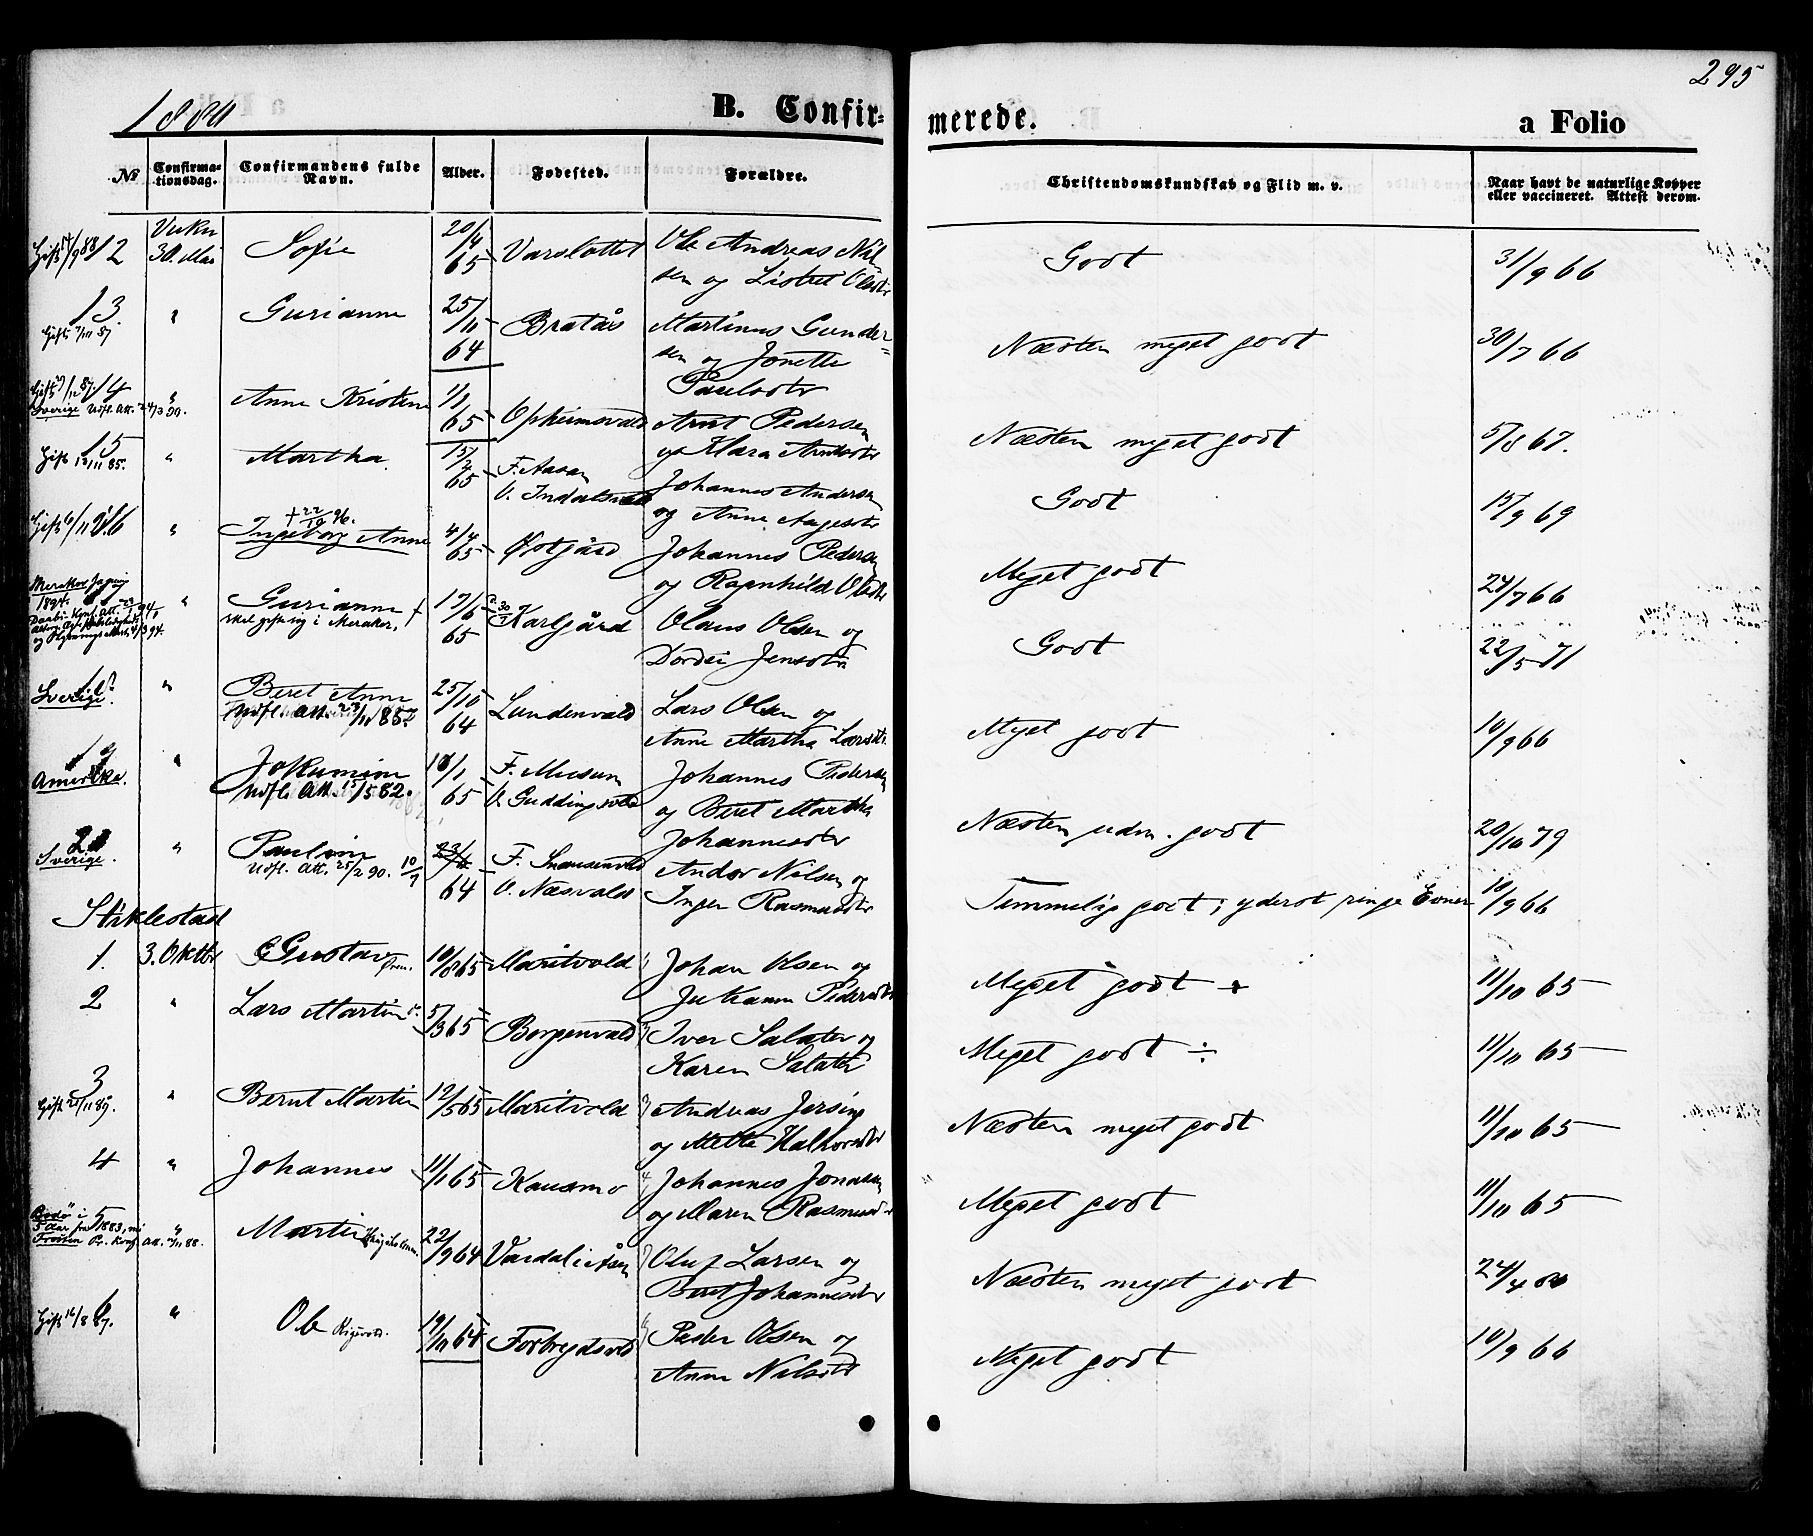 295
1880 B. Confir- merede. a Folio
No Confirma- tionsdag. Confirmandens fulde Navn. Alder. Fødested. Forældre. Christendomskundskab og Flid m. v. Naar havt de naturlige Kopper eller vaccineret. Attest derom.
Gift 88 12 30. Mai Sofie 20/4 65 Varslottet Ole Andreas Nil- Godt 31/9 66
sen og Olsdtr
13. " Gurianne 25/11 64 Bratås Martinus Gunder- Næsten myet godt 30/7 66
Gift 7/11 87 sen og Jonetta
Paulsdtr
14 " Anne Kristine 1/1 65 Opheimsvald Arnt Pedersen Næsten myet godt 5/8 67.
Sverige Udfl. Att. 24/3 90. og Klara Arntsdtr
15 " Martha. 15/2 65 F. Aasen Johannes Andersen Godt 15/9 69
Gift 13/11 85. V. Indalsvald og Anne Aagesdtr
+ 22/10 96.
16 " Ingeborg Anne 4/4 65 Østgård Johannes Pedersen Meget godt 24/7 66
og Ragnhild Olsdtr
Meraker 1894. " Gurianne + 17/6 65 Karlgård Olaus Olsen og Godt 22/5 71
skal gifte sig i Meraker, Dordei Jensdtr
18 " Beret Anne 25/10 64 Lundenvald Lars Olsen og Myet godt 10/9 66
Sverige. Udfl. Att. 23/11 1887 Anne Martha Larsdtr
19 " Jokumine 18/1 65 F. Musum Johannes Pedersen Næsten udm. godt 20/10 79
Amerika. Udfl. Att. 15/5 82. V. Guddingsvald og Beret Martha
Johannesdtr
20 " Pauline 10/9 64 F. Snausenvald Andor Nilsen og Temmelig godt; yderst ringe Evner 10/9 66
Sverige. Udfl. Att. 25/2 90. V. Næsvald Inger Rasmusdtr
Stiklestad
1. 3. Oktbr Gustav 10/8 65 Maritvold Johan Olsen og Meget godt + 11/10 65
Pedersdtr
2 " Lars Martin 5/3 65 Borgenvald Iver Salater og Meget godt ÷ 11/10 65
Karen Salater
3 " Bernt Martin 12/5 65 Maritvold Andreas Næsten myet godt 11/10 65
Gift 25/11 89. og Mette Halvorsdtr
4 " Johannes 11/1 65 Kausmo Johannes Jonassen Meget godt 11/10 65
og Maren Rasmusd
Bodø i 5 " Martin 22/9 64 Vardalicåsen Oluf Larsen og Næsten myet godt 24/4
5 Aar fra 1883, Beret Johannesdtr
Frosten Pr. Konf. Att.
6 " Ole 19/10 64 Forbregdsvld Peder Olsen og Meget godt 10/9 66
Gift 16/8 87. Anne Nilsdt